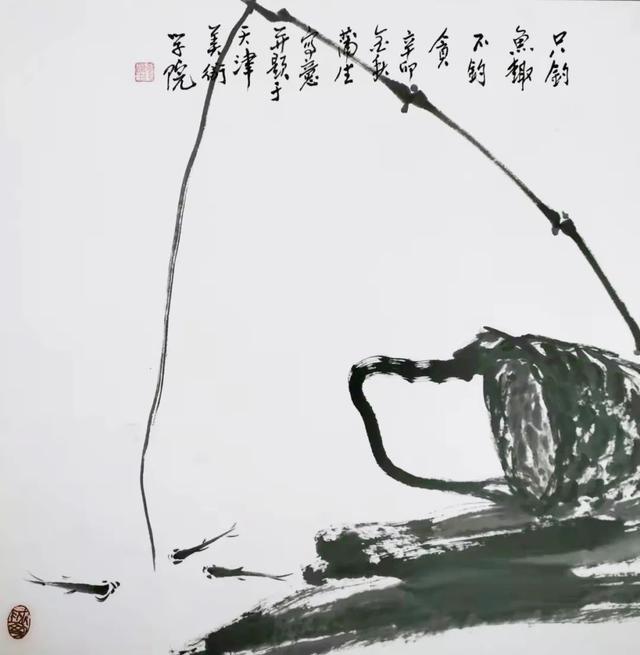 只钓
魚趣
不钓
貪
辛卯
金秋
蒲生
寫意
并題于
天津
美術
学院